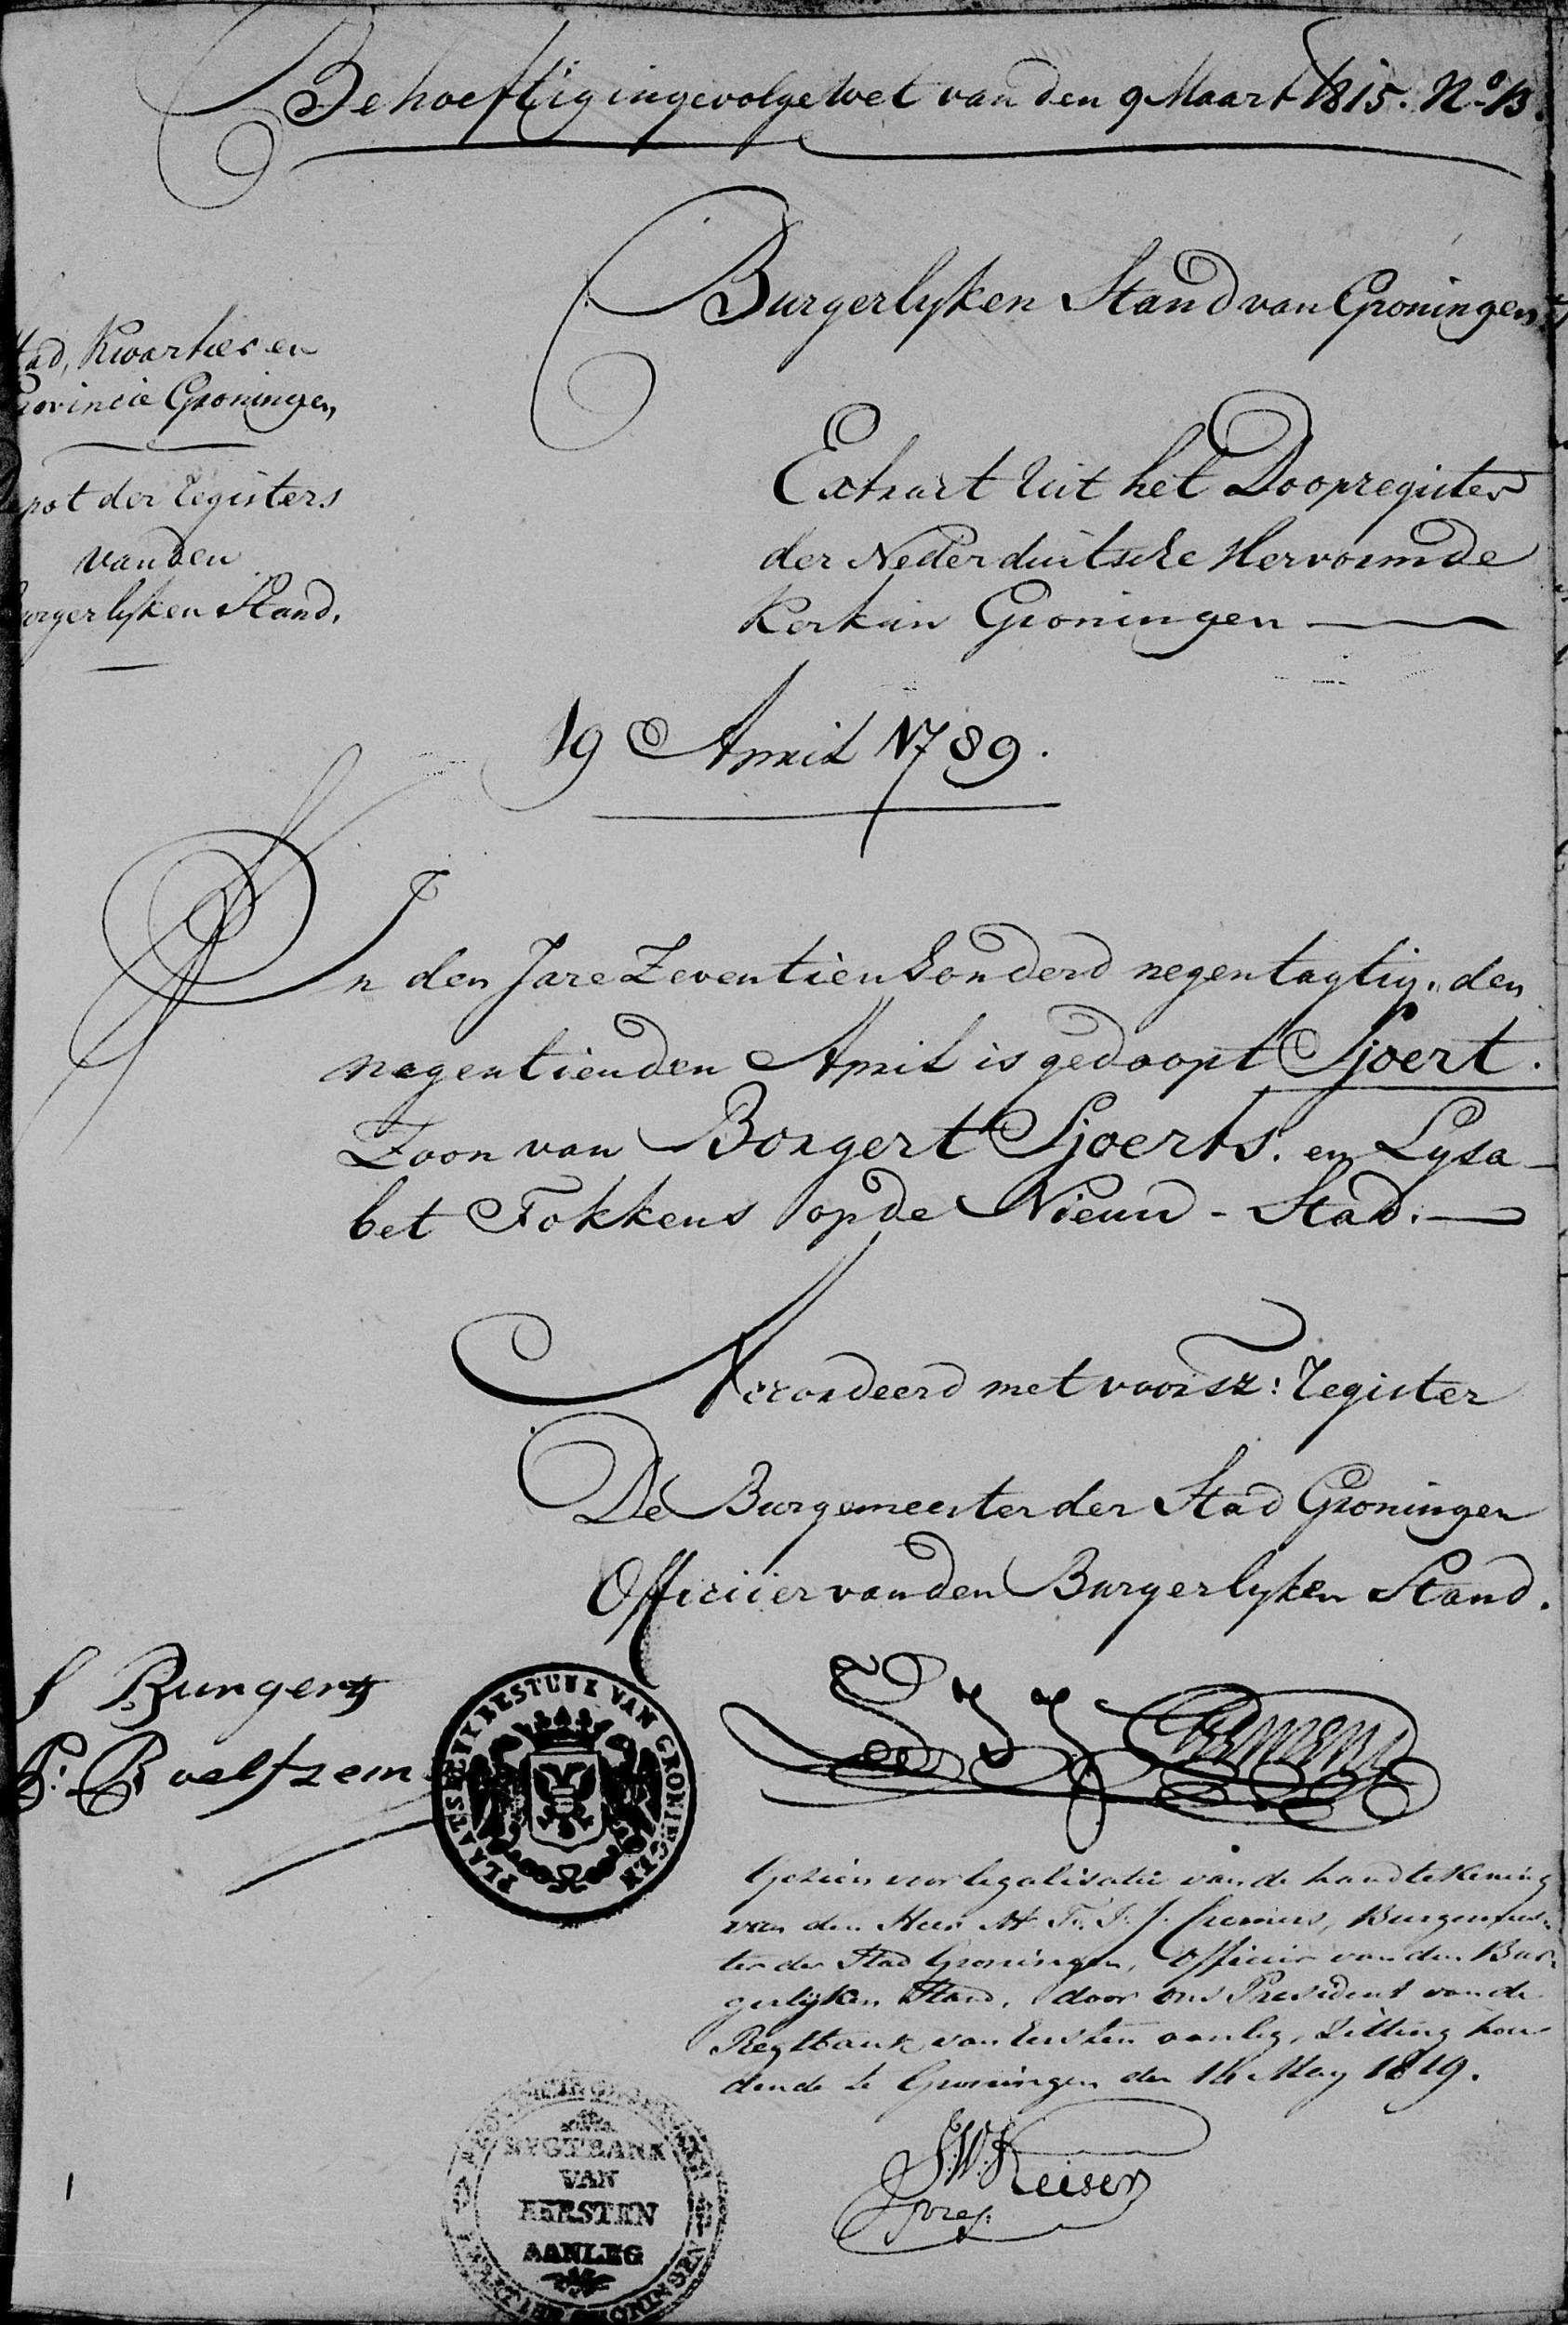 Behoeftig ingevolge wet van den 9 Maart 1815. No 13.
Burgerlyken Stand van Groningen
tad, Kwartier en
rovincie Groningen,
epot der Registers
van den
urgerlyken Stand.
Extract Uit het Doopregister
der Nederduitsche Hervormde
Kerk in Groningen
19 April 1789.
In den Jare Zeventien honderd negentagtig, den
negentienden April is gedoopt Sjoert.
Zoon van Borgert Sjoerts. en Lysa-
bet Fokkens op de Nieuw-Stad.
Accordeerd met voorsz: Register
De Burgemeester der Stad Groningen
Officiier van den Burgerlyken Stand.
Bungerts
P. Boeltzem
PLAATSELYK BESTUUR VAN GRONINGEN
Cremers
Gezien voor legalisatie van de handtekening
van den Heer Mr. F. I. J. Cremers, Burgemees-
ter der Stad Groningen, Officier van den Bur-
gerlijken Stand, door ons President van de
Regtbank van Eersten aanleg, Zitting hou-
dende te Groningen den 14 May 1819.
S. W. Keiser
Pres.
REGTBANK
VAN
EERSTEN
AANLEG